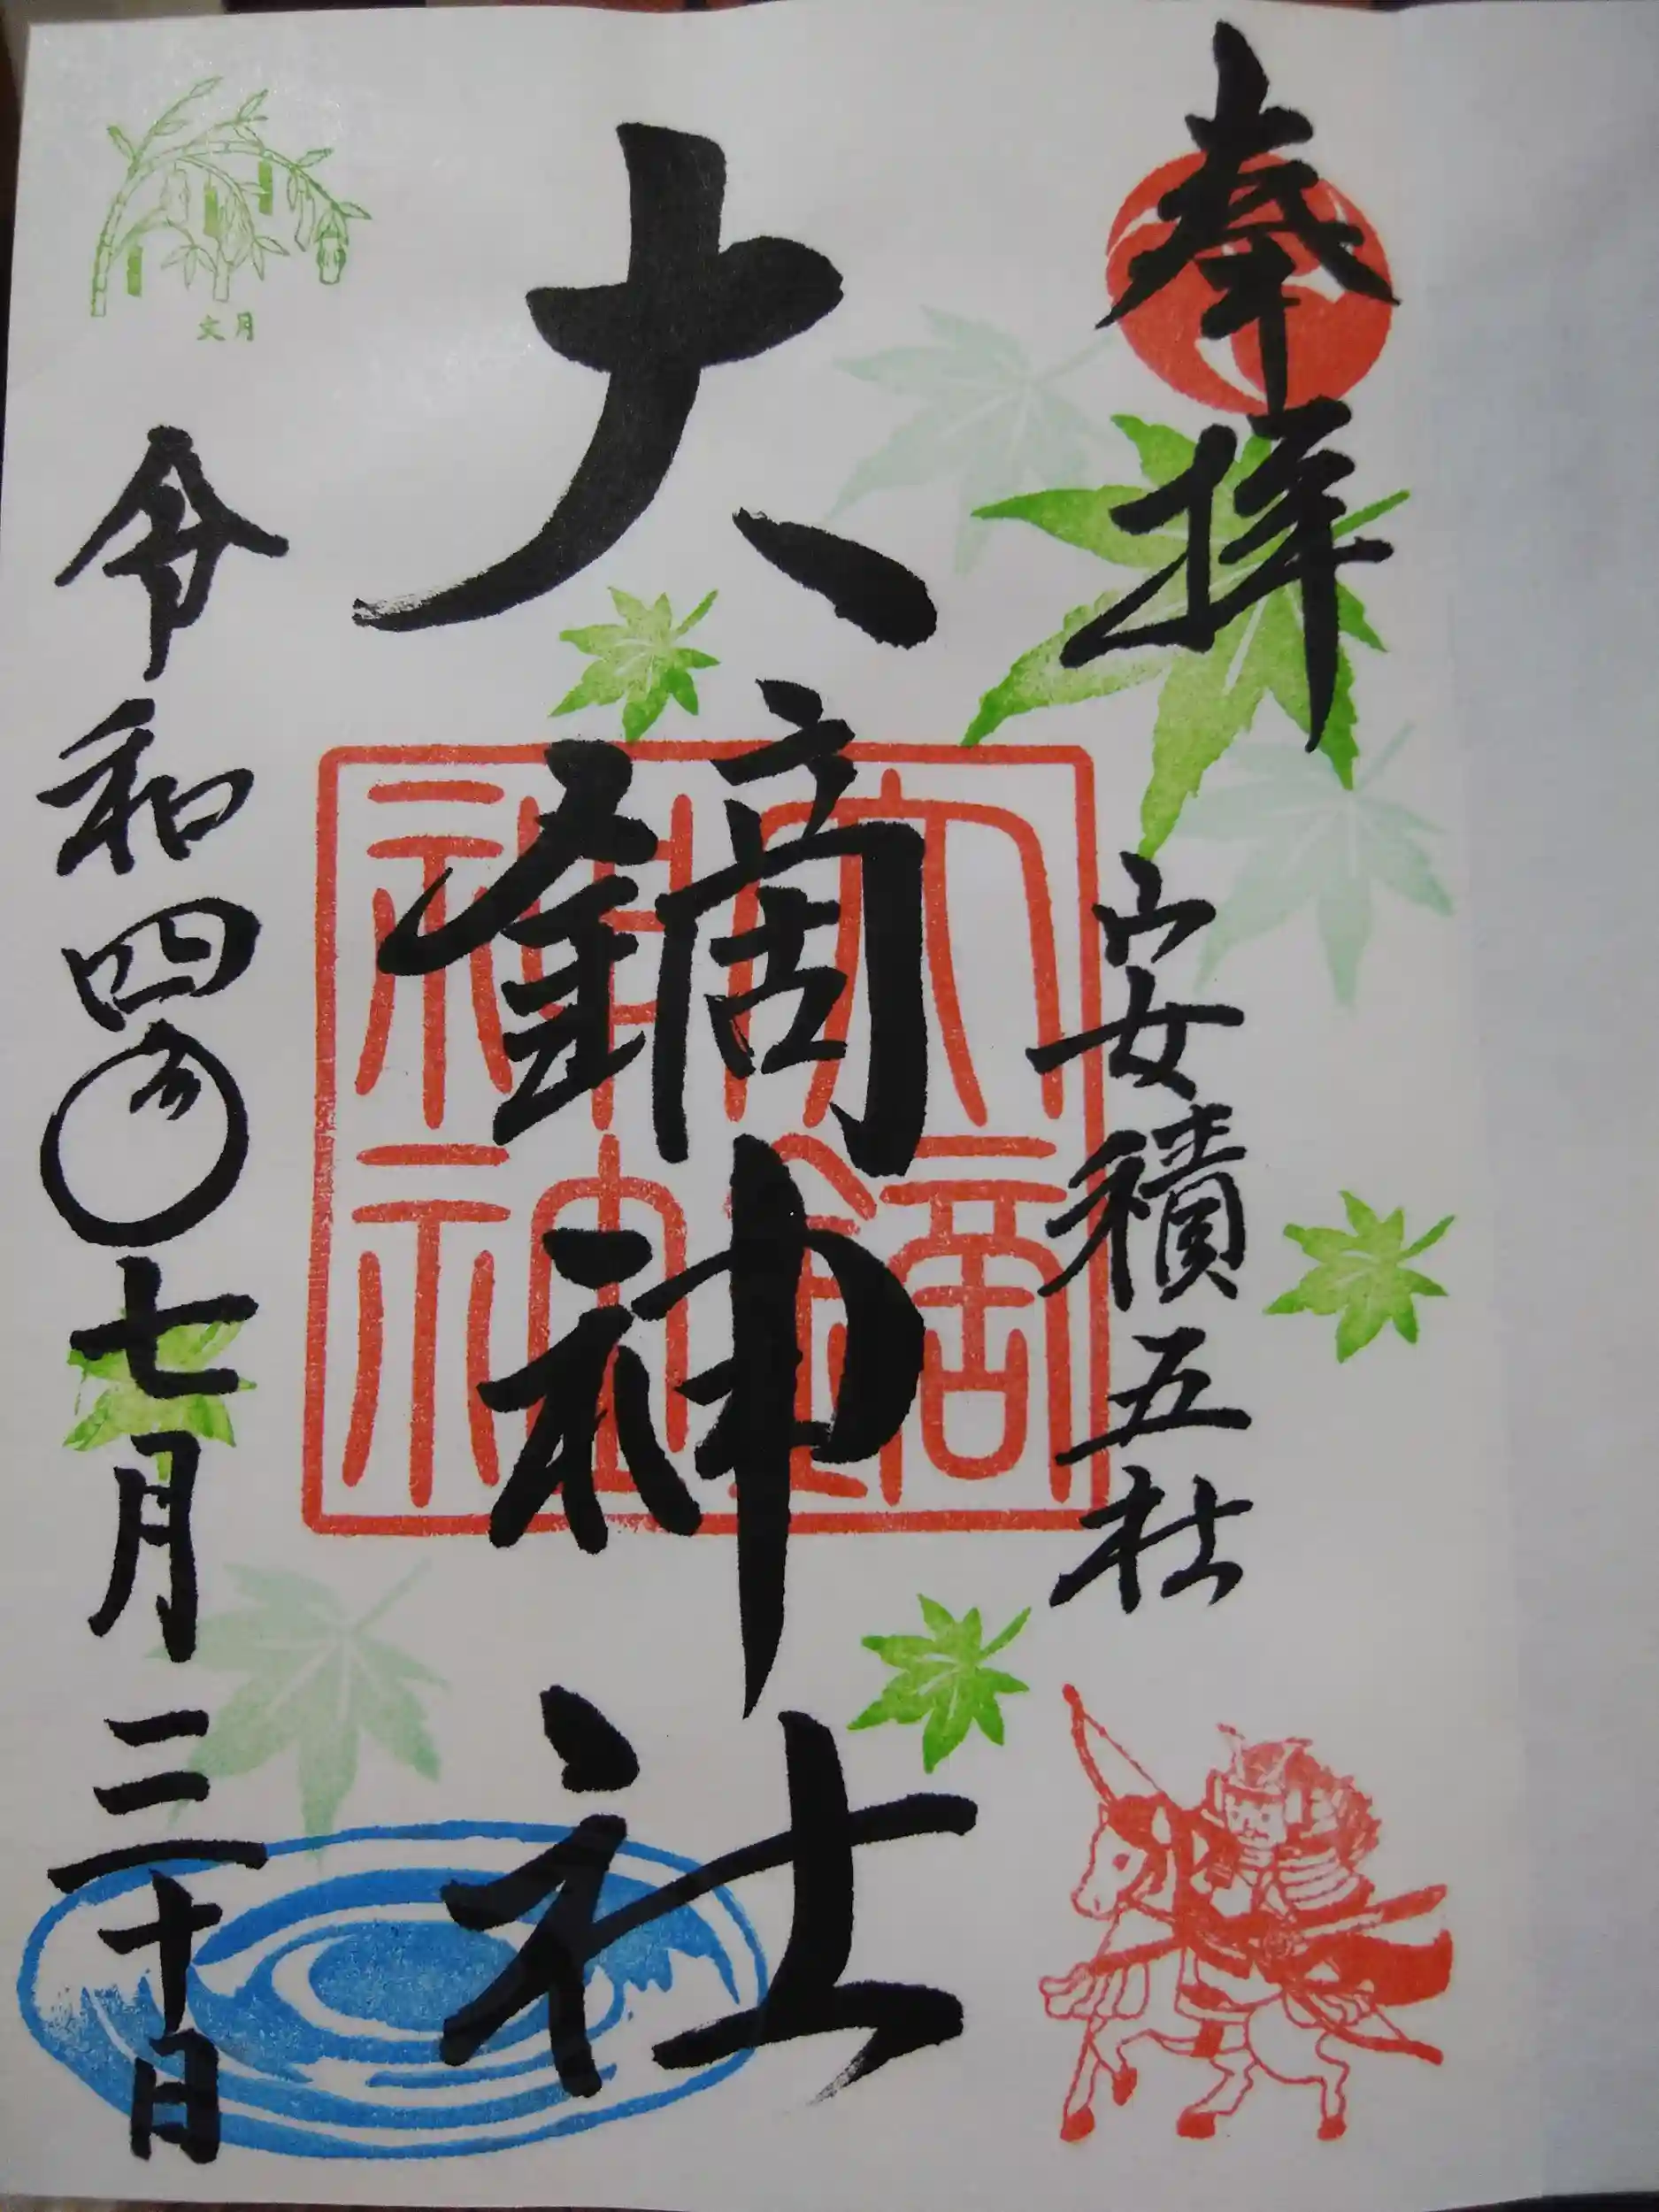 奉拝
安積五社
大鏑神社
大鏑神社
文月
令和四年七月三十日